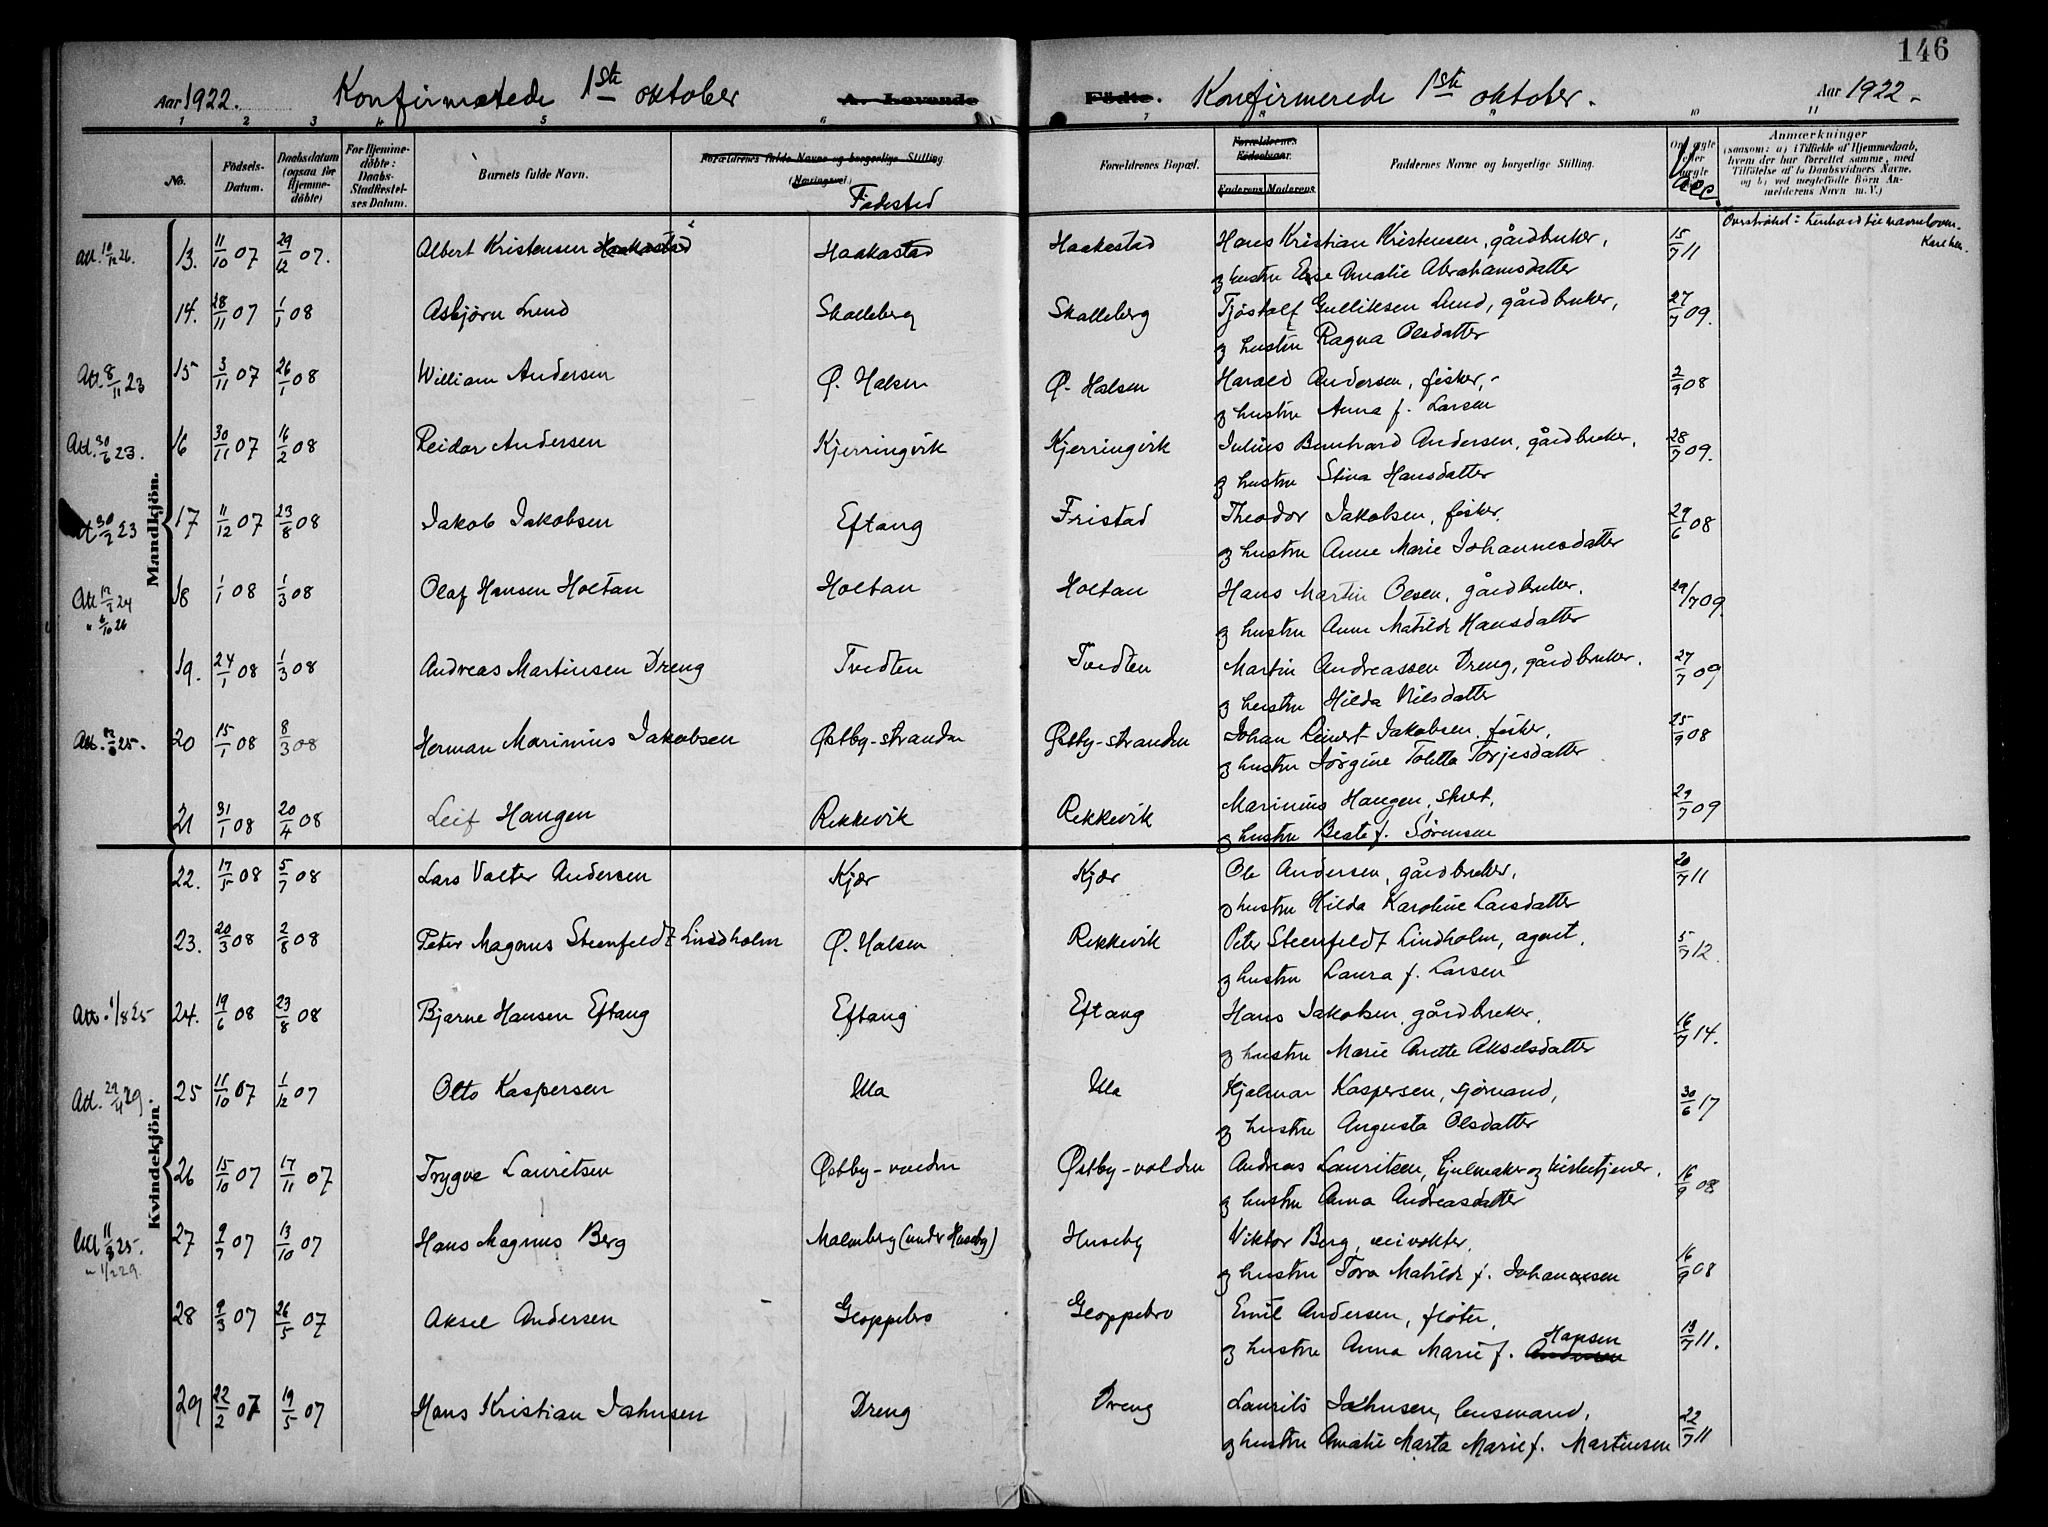 146
Aar 1922. Konfirmatede 1ste oktober A. Levende
Födte. Konfirmerede 1ste oktober. Aar 1922.
1 2 3 4 5 6 7 8 9 10 11
No. Födsels-Datum. Daabsdatum (ogsaa for Hjemmedöbte) For Hjemmedöbte: Daabs-Stadfestelses Datum. Barnets fulde Navn. Forældrenes fulde Navne og borgerlige Stilling (Næringsvei) Fødested
Forældrenes Bopæl. Forældrenes Födselsaar. Faderens Moderens Faddernes Navne og borgerlige Stilling. Vacc.
Anmærkninger
(saasom: a) i Tilfælde af Hjemmedaab,
hvem der har forrettet samme, med
Tilföielse af to Daabsvidners Navne,
og b) ved uegtefödte Börn Anmelderens
Navn m. V.)
Mandkjön.
Kvindekjön
Att. 10/12 26. 13. 11/10 07 29/12 07. Albert Kristensen Haakastad Haakastad Haakestad Hans Kristian Kristensen, gårdbruker, 15/7 11
og hustru Else Amalie Abrahamsdatter
14. 28/11 07 1/1 08 Asbjørn Lund Skalleberg Skalleberg Tjøstolf Gulliksen Lund, gårdbruker, 27/7 09.
og hustru Ragna Olsdatter
Att. 8/11 23 15 3/11 07 26/1 08 William Andersen Ø. Halsen Ø. Halsen Harald Andersen, fisker, 2/9 08
og hustru Anna f. Larsen
Att. 30/6 23. 16 30/11 07 16/2 08 Reidar Andersen Kjerringvik Kjerringvik Julius Bernhard Andersen, gårdbruker, 28/7 09.
og hustru Stina Hansdatter
23 17 11/12 07 23/8 08 Jakob Jakobsen Eftang Fristad Theodor Jakobsen, fisker, 29/6 08
og hustru Anne Marie Johannesdatter
24 26 18 1/1 08 1/3 08 Olaf Hansen Holtan Holtan Holtan Hans Martin Olsen, gårdbruker, 29/7 09
og hustru Anne Matilde Hansdatter
19. 24/1 08 1/3 08 Andreas Martinsen Dreng Tvedten Tvedten Martin Andreassen Dreng, gårdbruker. 27/7 09
og hustru Hilda Nilsdatter
25. 20 15/1 08 8/3 08 Herman Marinius Jakobsen Østby-stranden Østby-stranden Johan Leinert Jakobsen, fisker, 25/9 08
og hustru Jørgine Toletta Torjesdatter
21 31/1 08 20/4 08 Leif Haugen Rekkevik Rekkevik Marinius Haugen, 29/7 09
og hustru Beate f. Sørensen
22. 17/5 08 5/7 08 Lars Valter Andersen Kjær Kjær Ole Andersen, gårdbruker, 20/7 11
og hustru Hilda Karoline Larsdatter
23. 20/3 08 2/8 08 Peter Magnus Steenfeldt Lindholm Ø. Halsen Rekkevik Peter Steenfeldt Lindholm, agent, 5/7 12.
og hustru Laura f. Larsen
Att. 1/8 25 24. 19/6 08 23/8 08 Bjarne Hansen Eftang Eftang Eftang Hans Jakobsen, gårdbruker, 16/7 14.
og hustru Marie Anette Akselsdatter
Att. 29/11 29. 25 11/10 07 1/12 07 Otto Kaspersen Ula Ula Hjalmar Kaspersen, sjømand, 30/6 17
og hustru Augusta Olsdatter
26 15/10 07 17/11 07 Trygve Lauritsen Østby-volden Østby-volden Andreas Lauritsen, hjulmaker og kirketjener, 16/9 08
og hustru Anna Andreasdatter
Att 11/3 25. " 1/2 29. 27 9/7 07 13/10 07 Hans Magnus Berg Malmberg (under Huseby) Huseby Viktor Berg, veivokter, 16/9 08
og hustru Tora Matilde f. Johannesen
28 9/3 07 26/5 07 Aksel Andersen Gloppebro Gloppebro Emil Andersen, fløter, 13/7 11.
og hustru Anna Marie f. Andersen Hansen
29 22/2 07 19/5 07 Hans Kristian Jahnsen Dreng Dreng Laurits Jahnsen, lensmand, 22/7 11
og hustru Amalie Marta Marie f. Martinsen